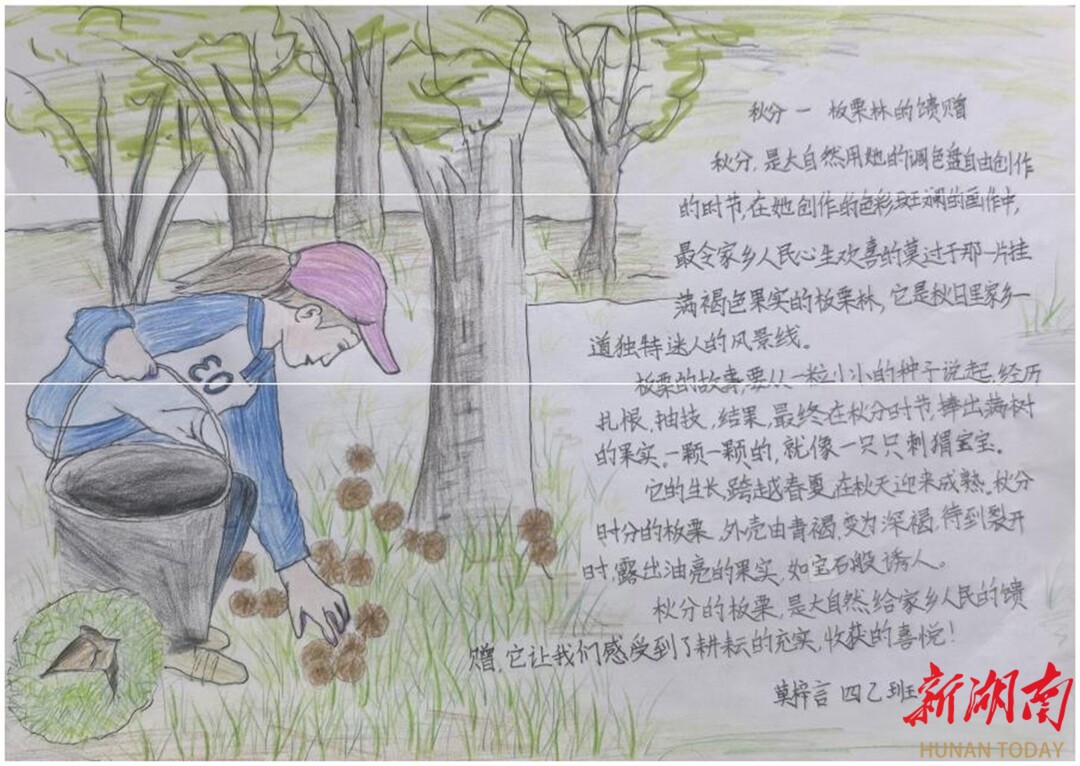 秋分—板栗林的馈赠
秋分,是大自然用她的调色盘自由创作
的时节,在她创作的色彩斑斓的画作中,
最令家乡人民心生欢喜的莫过于那一片挂
满褐色果实的板栗林,它是秋日里家乡一
道独特迷人的风景线。
板栗的故事,要从一粒小小的种子说起,经历
扎根,抽枝,结果,最终在秋分时节,捧出满树
的果实。一颗一颗的,就像一只只刺猬宝宝。
它的生长,跨越春夏,在秋天迎来成熟。秋分
时分的板栗,外壳由青褐,变为深褐,待到裂开
时,露出油亮的果实,如宝石般诱人。
秋分的板栗,是大自然给家乡人民的馈
赠,它让我们感受到了耕耘的充实,收获的喜悦!
莫梓言 四乙班
03
新湖南
HUNAN TODAY